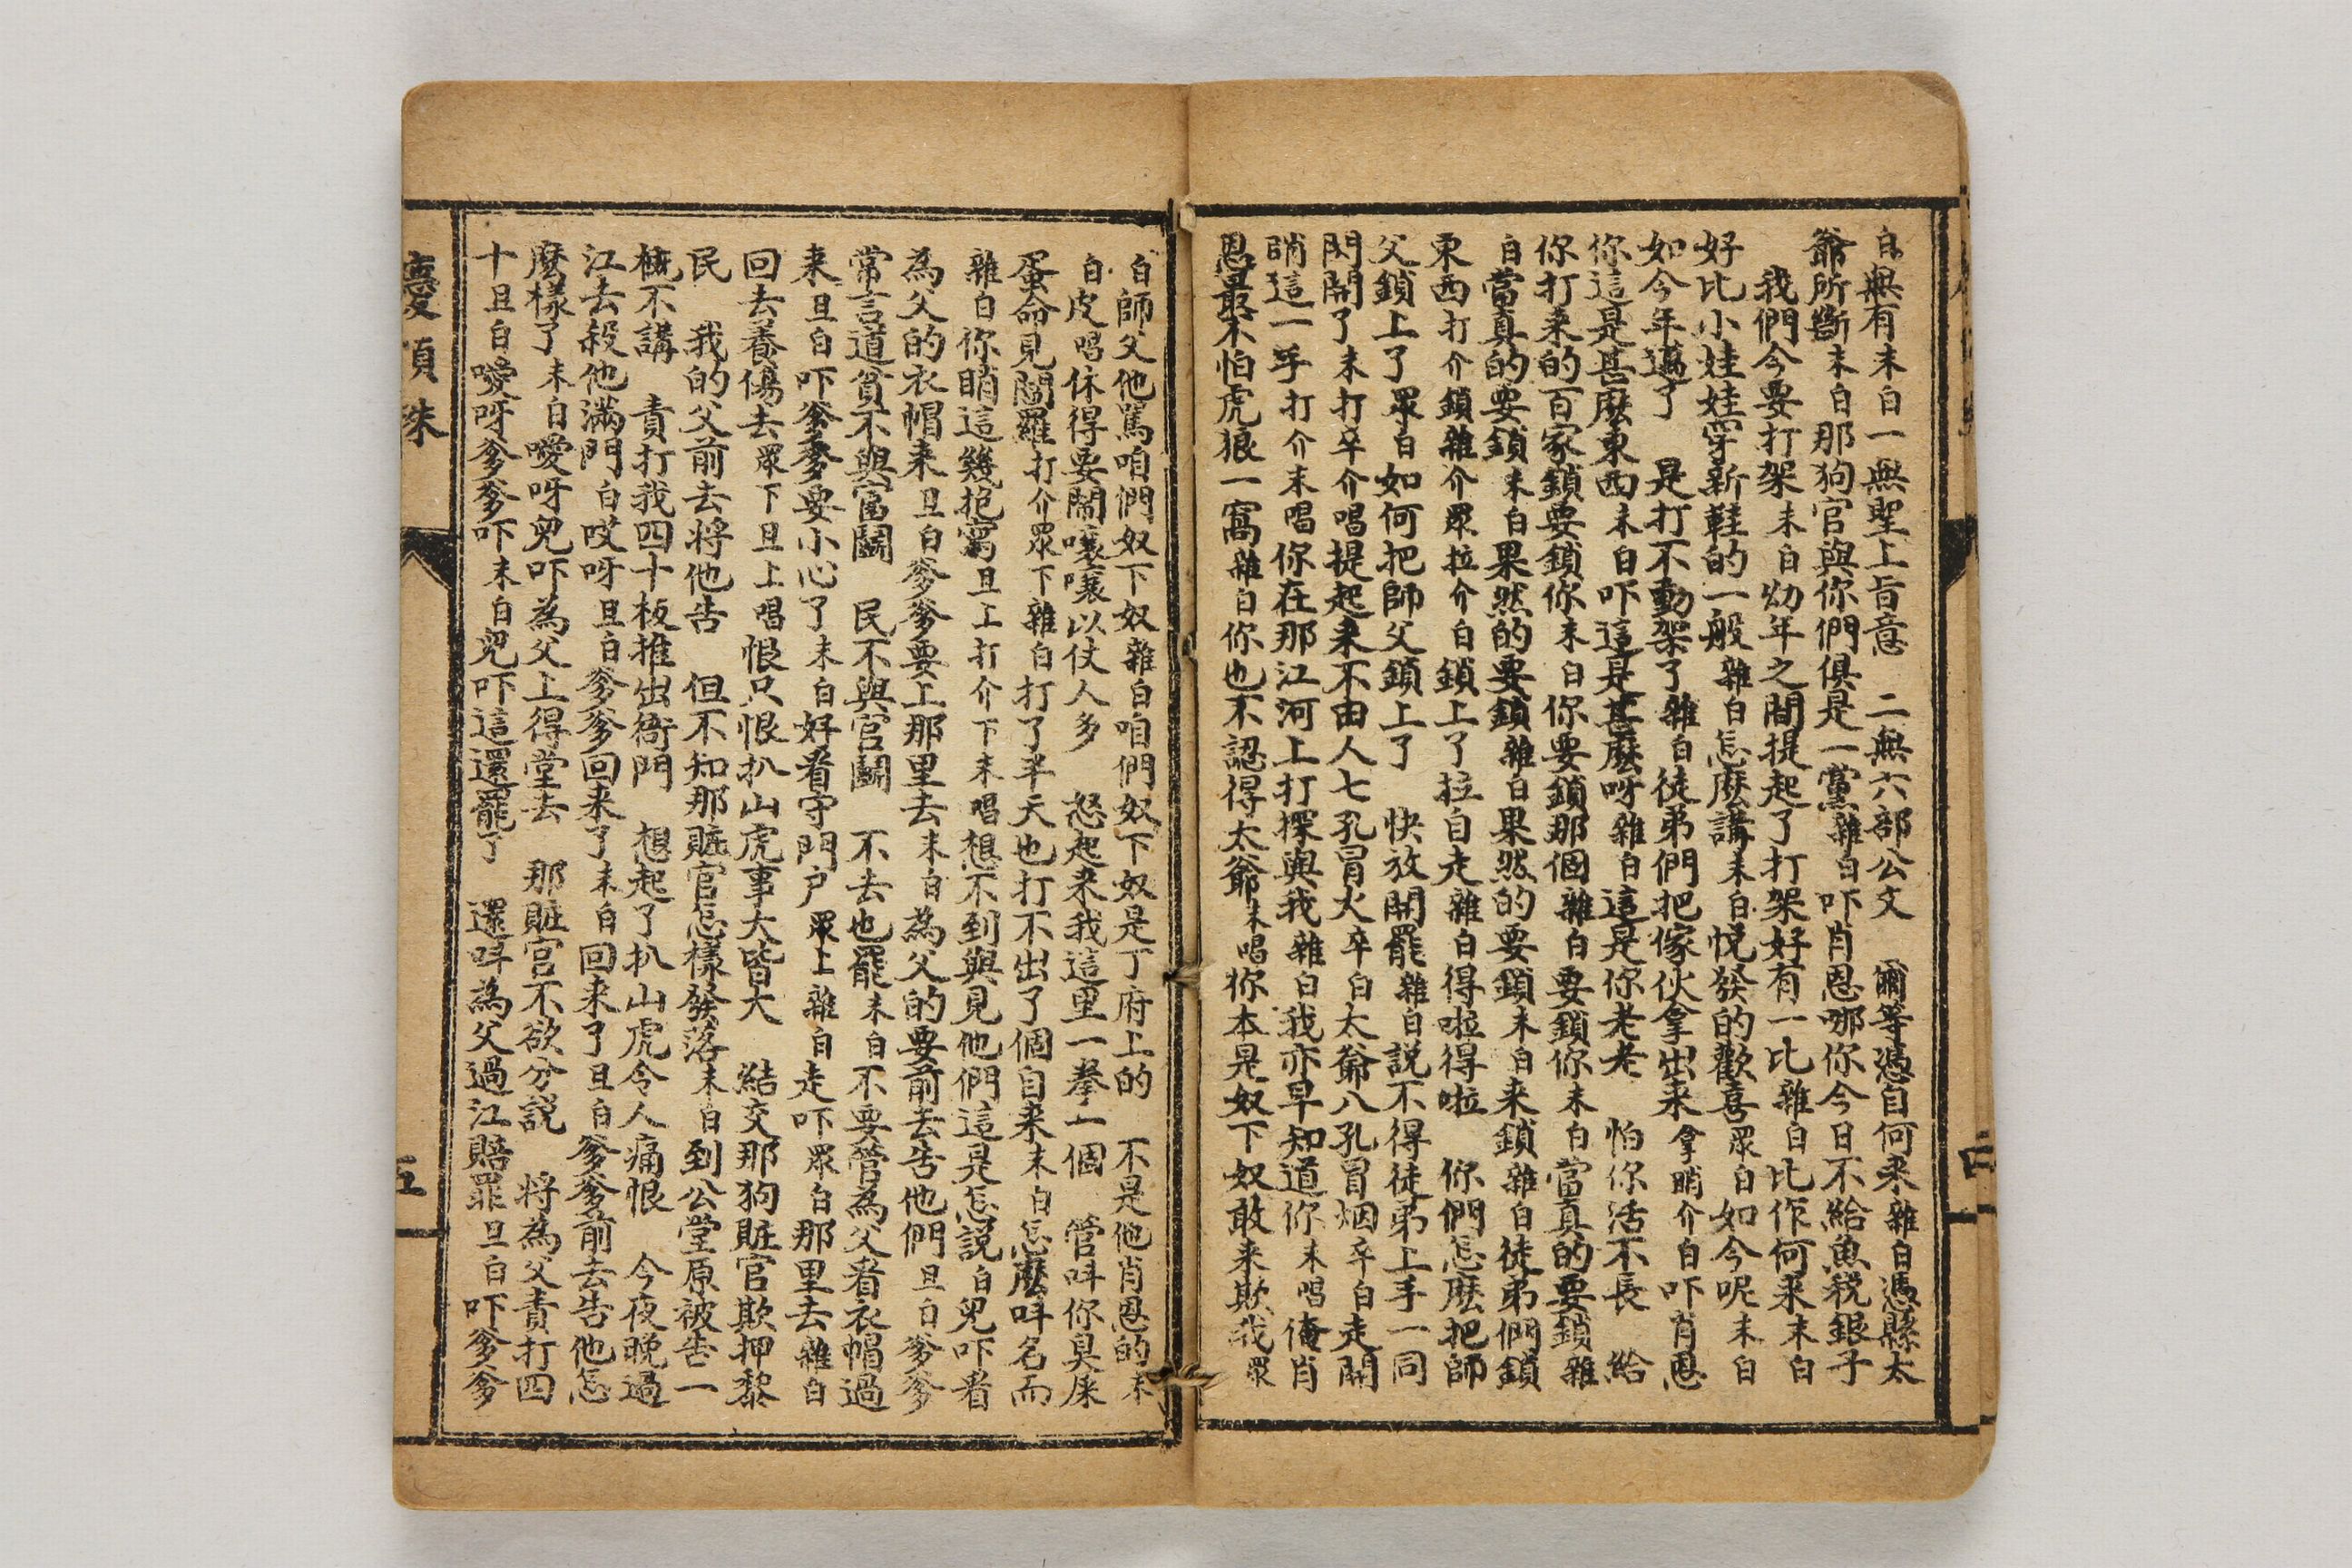 白無有末白一無聖上旨意　二無六部公文　爾等憑自何来雜白憑縣太
爺所斷末白那狗官與你們俱是一黨雜白吓肖恩哪你今日不給魚稅銀子
我們今要打架末白㓜年之間提起了打架好有一比雜白比作何来末白
好比小娃娃穿新鞋的一般雜白怎麽講末白悅發的歡喜眾白如今呢末白
如今年邁了　是打不動架了雜白徒弟們把傢伙拿出来拿哨介白吓肖恩
你這是甚麽東西末白吓這是甚麽呀雜白這是你老老　怕你活不長　給
你打来的百家鎖要鎖你末白你要鎖那個雜白要鎖你末白當真的要鎖雜
白當真的要鎖末白果然的要鎖雜白果然的要鎖末白来鎖雜白徒弟們鎖
東西打介鎖雜介眾拉介白鎖上了拉自走雜白得啦得啦　你們怎麽把師
父鎖上了眾白如何把師父鎖上了　快放開罷雜白說不得徒弟上手一同
閃開了末打卒介唱提起来不由人七孔冒火卒白太爺八孔冒烟卒白走開
哨這一手打介末唱你在那江河上打探與我雜白我亦早知道你末唱俺肖
恩最不怕虎狼一窩雜白你也不認得太爺末唱你本是奴下奴敢来欺我眾
白師父他罵咱們奴下奴雜白咱們奴下奴是丁府上的　不是他肖恩的末
白皮唱休得要鬧嚷嚷以仗人多　怒起来我這里一拳一個　管呌你臭屎
蛋命見閻羅打介眾下雜白打了半天也打不出了個自来末白怎麽呌名而
雜白你哨這幾抱窩旦上打介下末唱想不到與見他們這是怎說白兒吓看
為父的衣帽来旦白爹爹要上那里去末白為父的要前去告他們旦白爹爹
常言道貧不與富鬭　民不與官鬭　不去也罷末白不要管為父看衣帽過
来旦白吓爹爹要小心了末白好看守門户眾上雜白走吓眾白那里去雜白
回去養傷去眾下旦上唱恨只恨扒山虎事大皆大　結交那狗賍官欺押黎
民　我的父前去將他告　但不知那賍官怎樣發落末白到公堂原被告一
概不講　責打我四十板推出衙門　想起了扒山虎令人痛恨　今夜晚過
江去殺他滿門白哎呀旦白爹爹回来了末白回来了旦白爹爹前去告他怎
麽樣了末白噯呀兒吓為父上得堂去　那賍官不欲分說　將為父責打四
十旦白噯呀爹爹吓末白兒吓這還罷了　還呌為父過江賠罪旦白吓爹爹
慶頂珠
五